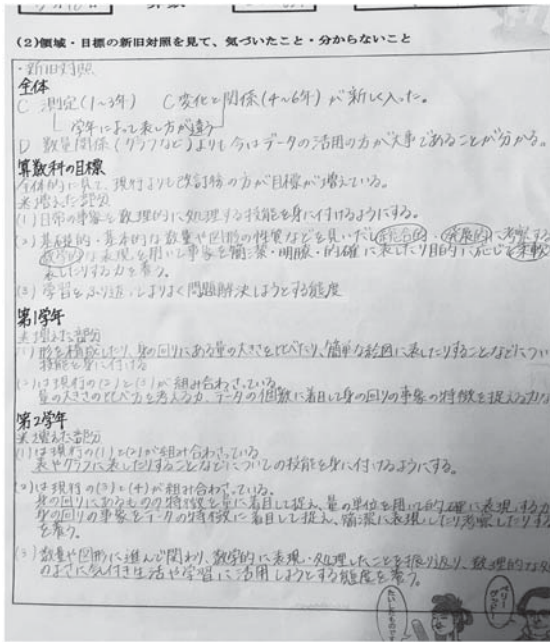 (2)領域・目標の新旧対照を見て、気づいたこと・分からないこと
・新旧対照
全体
C 測定(1~3年) C 変化と関係(4~6年)が新しく入った。
学年によって表し方が違う
D 数量関係(グラフなど)よりも今はデータの活用の方が大事であることが分かる。
算数科の目標
全体的に見て、現行よりも改訂後の方が目標が増えている。
※増えた部分
(1)日常の事象を数理的に処理する技能を身に付けるようにする。
(2)基礎的・基本的な数量や図形の性質などを見いだし統合的・発展的に考察する
数学的な表現を用いて事象を簡潔・明瞭・的確に表したり目的に応じて柔軟
表したりする力を養う。
(3)学習をふり返ってよりよく問題解決しようとする態度
第1学年
※増えた部分
(1)形を構成したり、身の回りにある量の大きさを比べたり、簡単な絵図に表したりすることなどについ
技能を身に付ける
(2)は現行の(2)と(3)が組み合わさっている。
量の大きさの比べ方を考える力、データの個数に着目して身の回りの事象の特徴を捉える力な
第2学年
※増えた部分
(1)は現行の(1)と(2)が組み合わさっている
表やグラフに表したりすることなどについての技能を身に付けるようにする。
(2)は現行の(3)と(4)が組み合わさっている。
身の回りにあるものの特徴を量に着目して捉え、量の単位を用いて的確に表現する力
身の回りの事象をデータの特徴に着目して捉え、簡潔に表現したり考察したりする
を養う。
(3)数量や図形に進んで関わり、数学的に表現・処理したことを振り返り、数理的な処
のよさに気付き生活や学習に活用しようとする態度を養う。